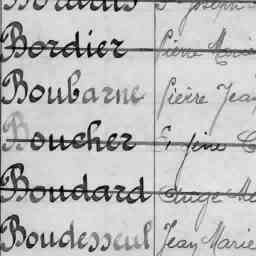 Bordier Pierre Marie
Boubarne Pierre Jean
Boucher
Boudard Ange
Boudesseul Jean Marie